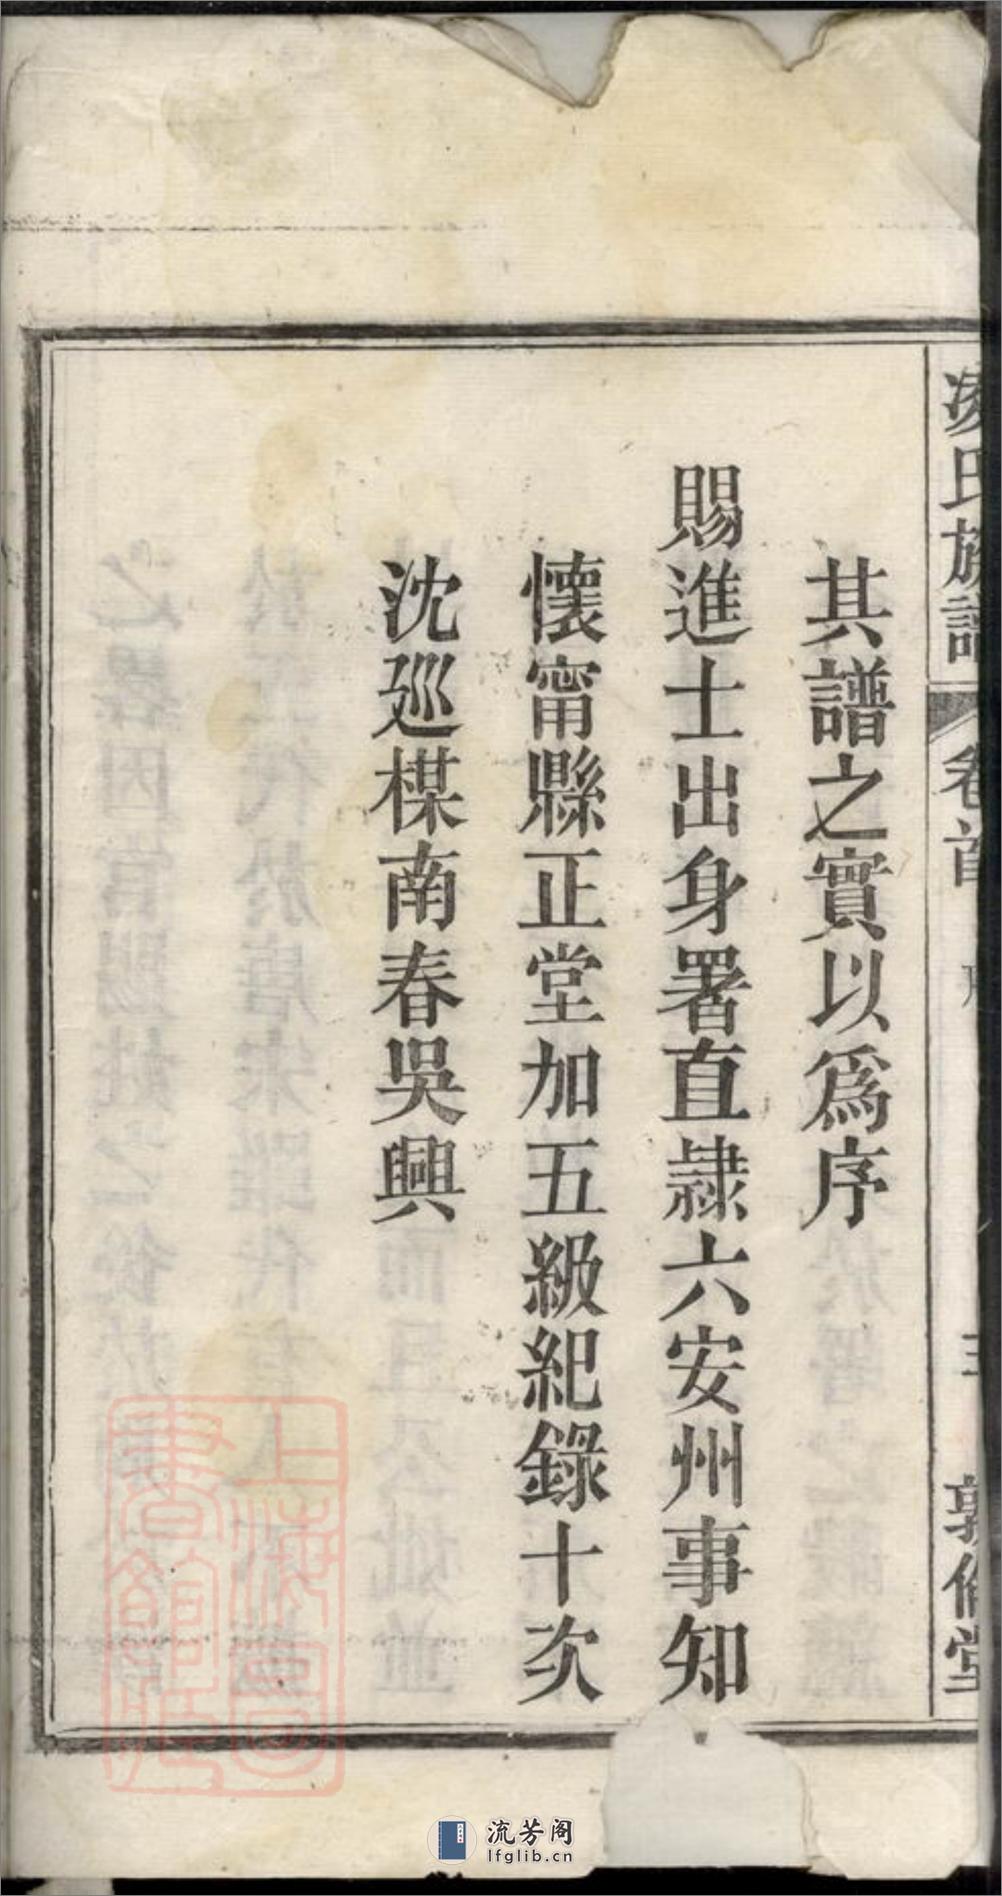 凌氏族譜
卷首
敦修堂
其譜之實以爲序
賜進士出身署直隸六安州事知
懷甯縣正堂加五級紀錄十次
沈廵楳南春吳興
上海圖書館藏
流芳阁
lfglib.cn